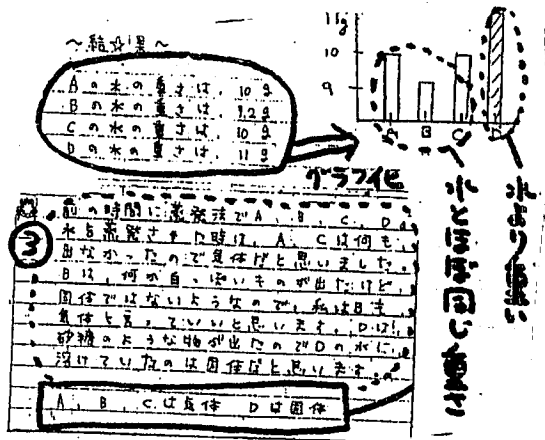 ～結果～
Aの水の重さは、10g
Bの水の重さは、9.2g
Cの水の重さは、10g
Dの水の重さは、11g
11g
10
9
A
B
C
D
グラフ化
3
前の時間に蒸発法でA、B、C、D、
水を蒸発させた時は、A、Cは何も
出なかったので気体だと思いました。
Bは、何か白っぽいものが出たけど、
固体ではないようなので、私はBも
気体と言っていいと思います。Dは、
砂糖のような物が出たのでDの水に
溶けていたのは固体だと思います。
A、B、Cは気体 Dは固体